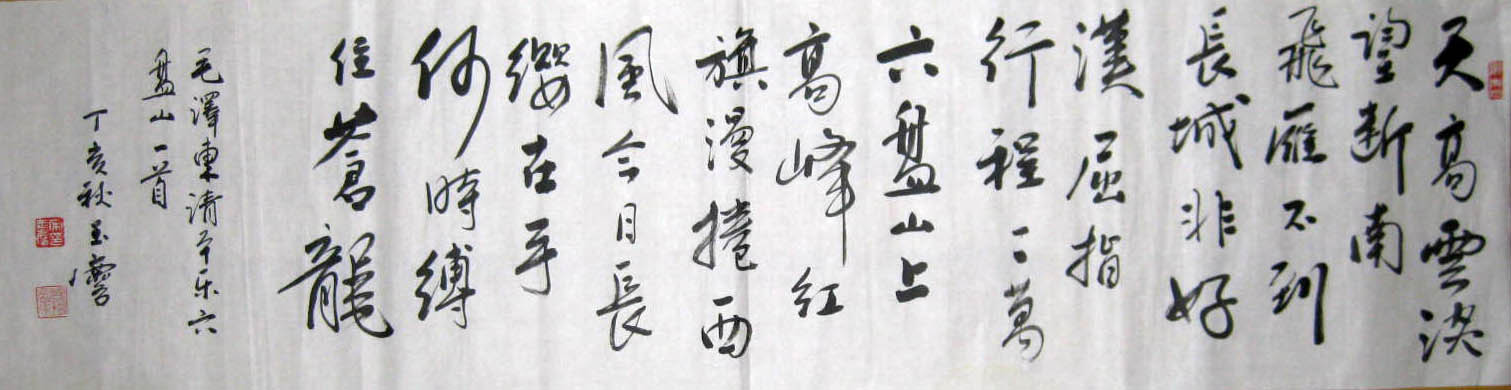 天高雲淡
望断南
飛雁不到
長城非好
漢屈指
行程二萬
六盘山上
高峰紅
旗漫捲西
風今日長
纓在手
何時縛
住蒼龍
毛澤東清平乐六
盘山一首
丁亥秋玉